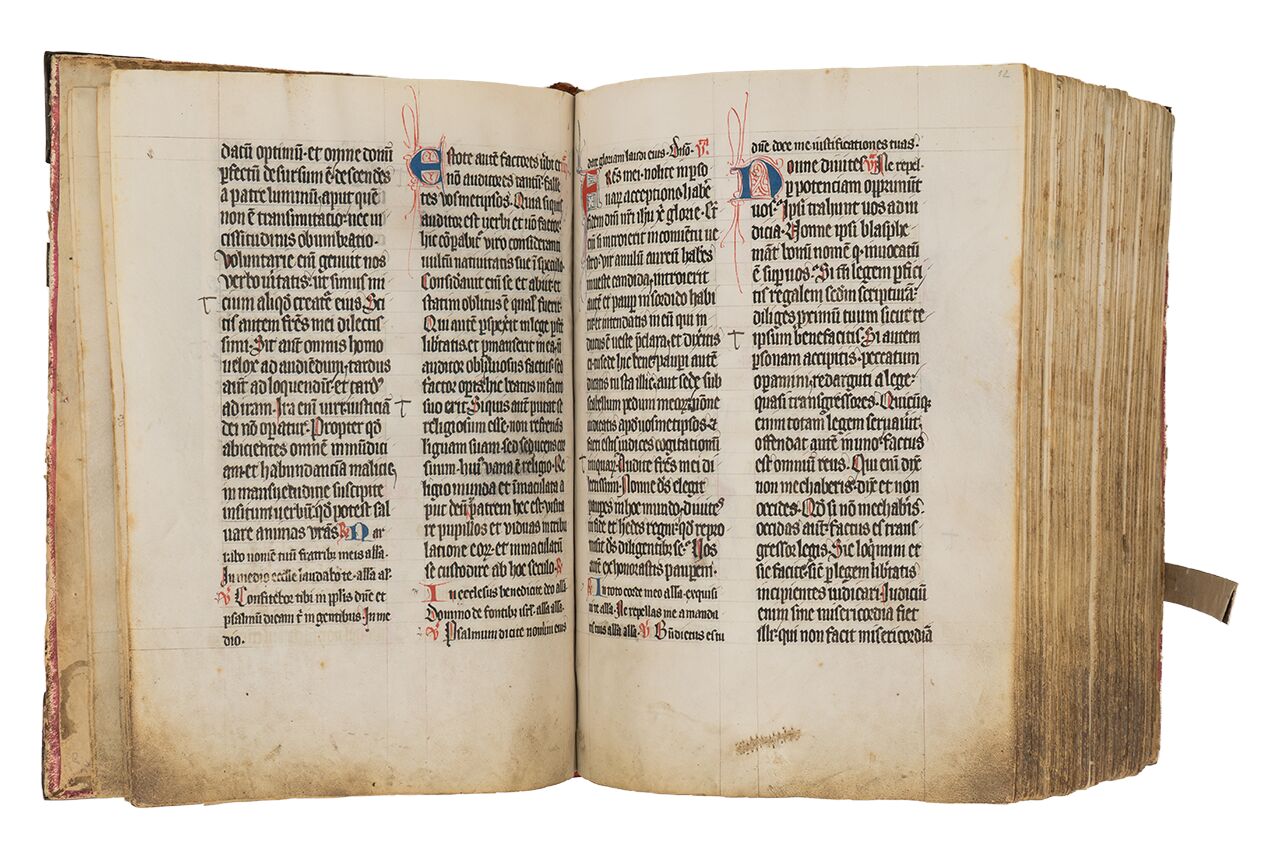 datū optimū · et omne donū
ꝑfectū desursum ē · descendēs
a patre luminū · aput quē
non ē transmutatio · nec vi
cissitudinis obumbratio ·
Voluntarie eni̅ genuit nos
verbo veritatis · ut simus ini
cium aliqd̛ creatr̄e eius · Sci
tis autem fr̄es mei dilectis
simi · Sit aut̄ omnis homo
velox ad audiēdum · tardus
aut̄ ad loquendū · et tard᷒
ad iram · Ira eni̅ viri iusticiam
dei nō oꝑatur · Propter qd̛
abicientes omnē inmūdici
am · et habundanciā malicie
in mansuetudine suscipite
insitum verbū qd̛ potest sal
vare animas vr̄as · R̸ Nar
rabo nomē tuū fratribꝫ meis alla ·
In medio ecclie laudabo te · alla al ·
V̸ Confitebor tibi in pplis dn̄e et
psalmū dicam t̄ in gentibus · In me
dio ·
Estote autē factores ūbi et
nō auditores tantū · falle
tes vosmetipsos · Quia si quis
auditor est verbi et nō factor
hic cōpabit᷒ viro consideranti
vultū nativitatis sue ī speculo
Considauit eni̅ se et abiit · et
statim oblitus ē qual̛ fuerit ·
Qui autē ꝑspexit in lege ꝑfc̄e
libtatis et ꝑmanserit in ea · nō
auditor obliuiosus factus · sed
factor opis · hic beatus in facto
suo erit · Si quis aut̄ putat se
religiosum esse · non refrenās
liguam suam · sed seducens cor
suum · hui᷒ vana ē religio · Re
ligio munda et īmaculata a
put deū ꝑ patrem hec est · visita
re pupillos et viduas in tribu
latione eoꝝ · et inmaculatū
se custodire ab hoc seculo · R̸
In ecclesiis benedicite deo alla
Domino de fontibꝫ isrl̄ · alla alla ·
V̸ Psalmum dicite nomini eius
date gloriam laudi eius · Dn̄o · V̸
Fr̄es mei · nolite in ꝑso
naꝝ acceptione habē
fidem dn̄i nr̄i ih̄u xp̄i glorie · Et
eni̅ si introierit in conuētu ve
stro · vir anulū aureū habēs
in ueste candida · introierit
autē et paup in sordido habi
tu · et intendatis in eū qui in
dutus ē veste p̄clara · et dixeritis
ei · tu sede hic bene · pauꝑi autē
dicatis · tu sta illic · aut sede sub
scabellum pedum meoꝝ · nōne
iudicatis apd̛ vosmetipsos · et
facti estis iudices cogitationū
iniquaꝝ · Audite fr̄es mei di
lectissimi · Nonne d̄s elegit
paupes in hoc mundo · diuites
in fide et hedes regni · qd̛ repro
misit d̄s diligentibꝫ se · Vos
autē exhonorastis pauꝑem ·
R̸ In toto corde meo alla · exquisi
vi te alla · Ne repellas me a manda
tis tuis alla alla · V̸ Bn̄dictus es tu
12
dn̄e doce me iustificationes tuas ·
Nonne diuites V̸ · Ne repel ·
ꝑ potenciam opprimūt
vos · Ipsi trahunt uos ad iu
dicia · Nonne ipsi blasphe
māt bonū nomē q · inuocatū
ē sup uos · Si tn̄ legem ꝑfici
tis regalem scdm̄ scripturā ·
diliges p̄ximū tuum sicut te
ipsum benefacitis · Si autem
ꝑsonam accipitis · peccatum
oꝑamini · redarguti a lege
quasi transgressores · Quicūqꝫ
enim totam legem seruauit ·
offendat autē in uno · factus
est omniū reus · Qui eni̅ dix̄
non mechaberis · dix̄ et non
occides · Qd̛ si nō mechab̛is ·
occidas aut̄ · factus es trans
gressor legis · Sic loq̛mini et
sic facite · sic̄ ꝑ legem libtatis
incipientes iudicari · Iudiciū
enim sine misericordia fiet
illi · qui non facit misericordiā